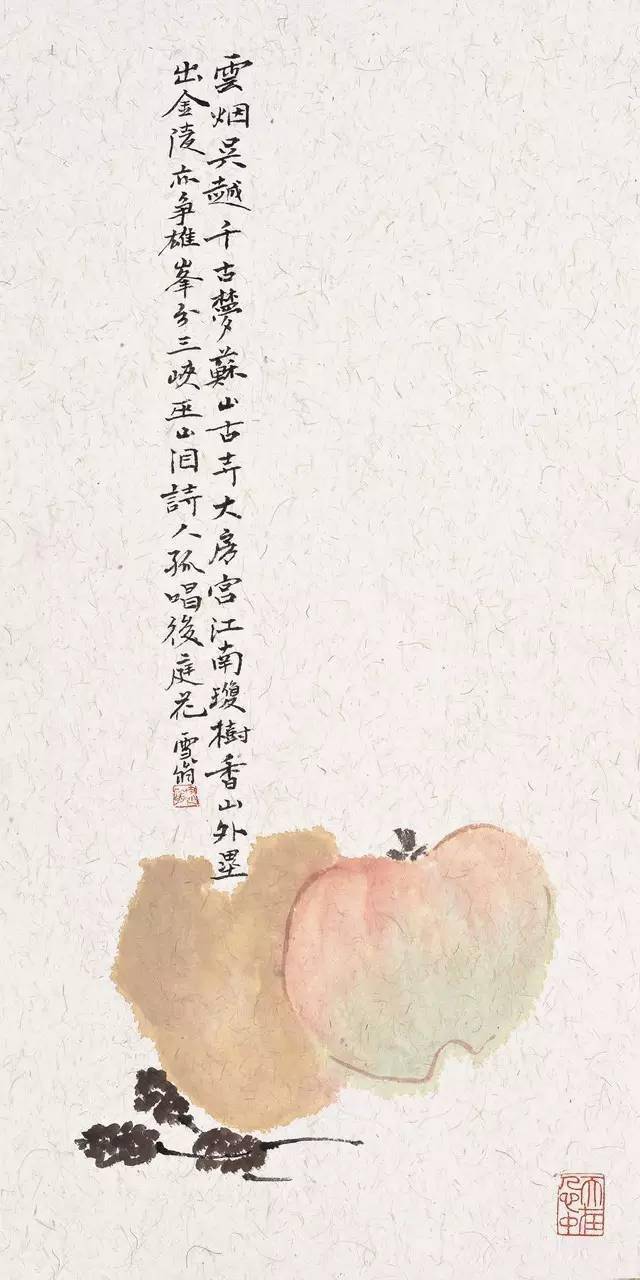 雲烟吳越千古夢蘇山古寺大房宮江南瓊樹香山外墨
出金陵亦争雄峯分三峽巫山泪詩人孤唱後庭花
雪翁